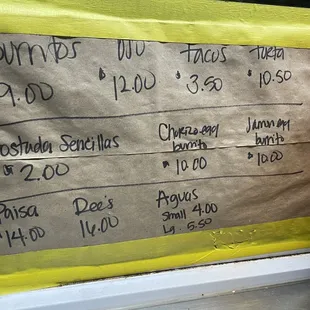 urritos
9.00
12.00
Tacos
$3.50
Torta
$10.50
ostada Sencillas
$2.00
Chorizo egg
burrito
$10.00
Jamon egg
burrito
$10.00
Paisa
$14.00
Dee's
16.00
Aguas
Small 4.00
Lg. 5.50